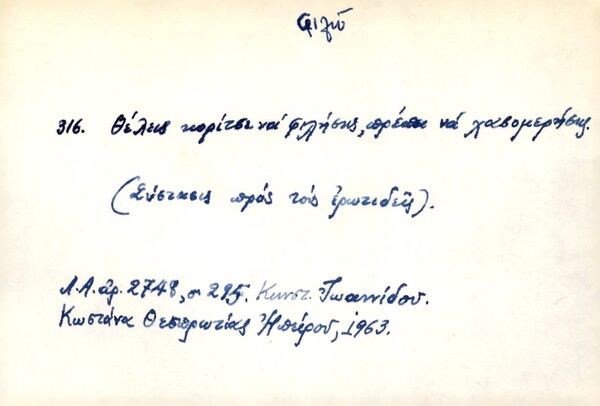 φιλῶ
316. Θέλεις κορίτσι νά φιλήσῃς, πρέπει νά χασομερήσῃς.
(Σύστασις πρός τούς ἐρωτιδεῖς).
Λ.Α. ἀρ. 2748, σ 295. Κωνστ. Ἰωαννίδου.
Κωστάνα Θεσπρωτίας Ἠπείρου, 1963.